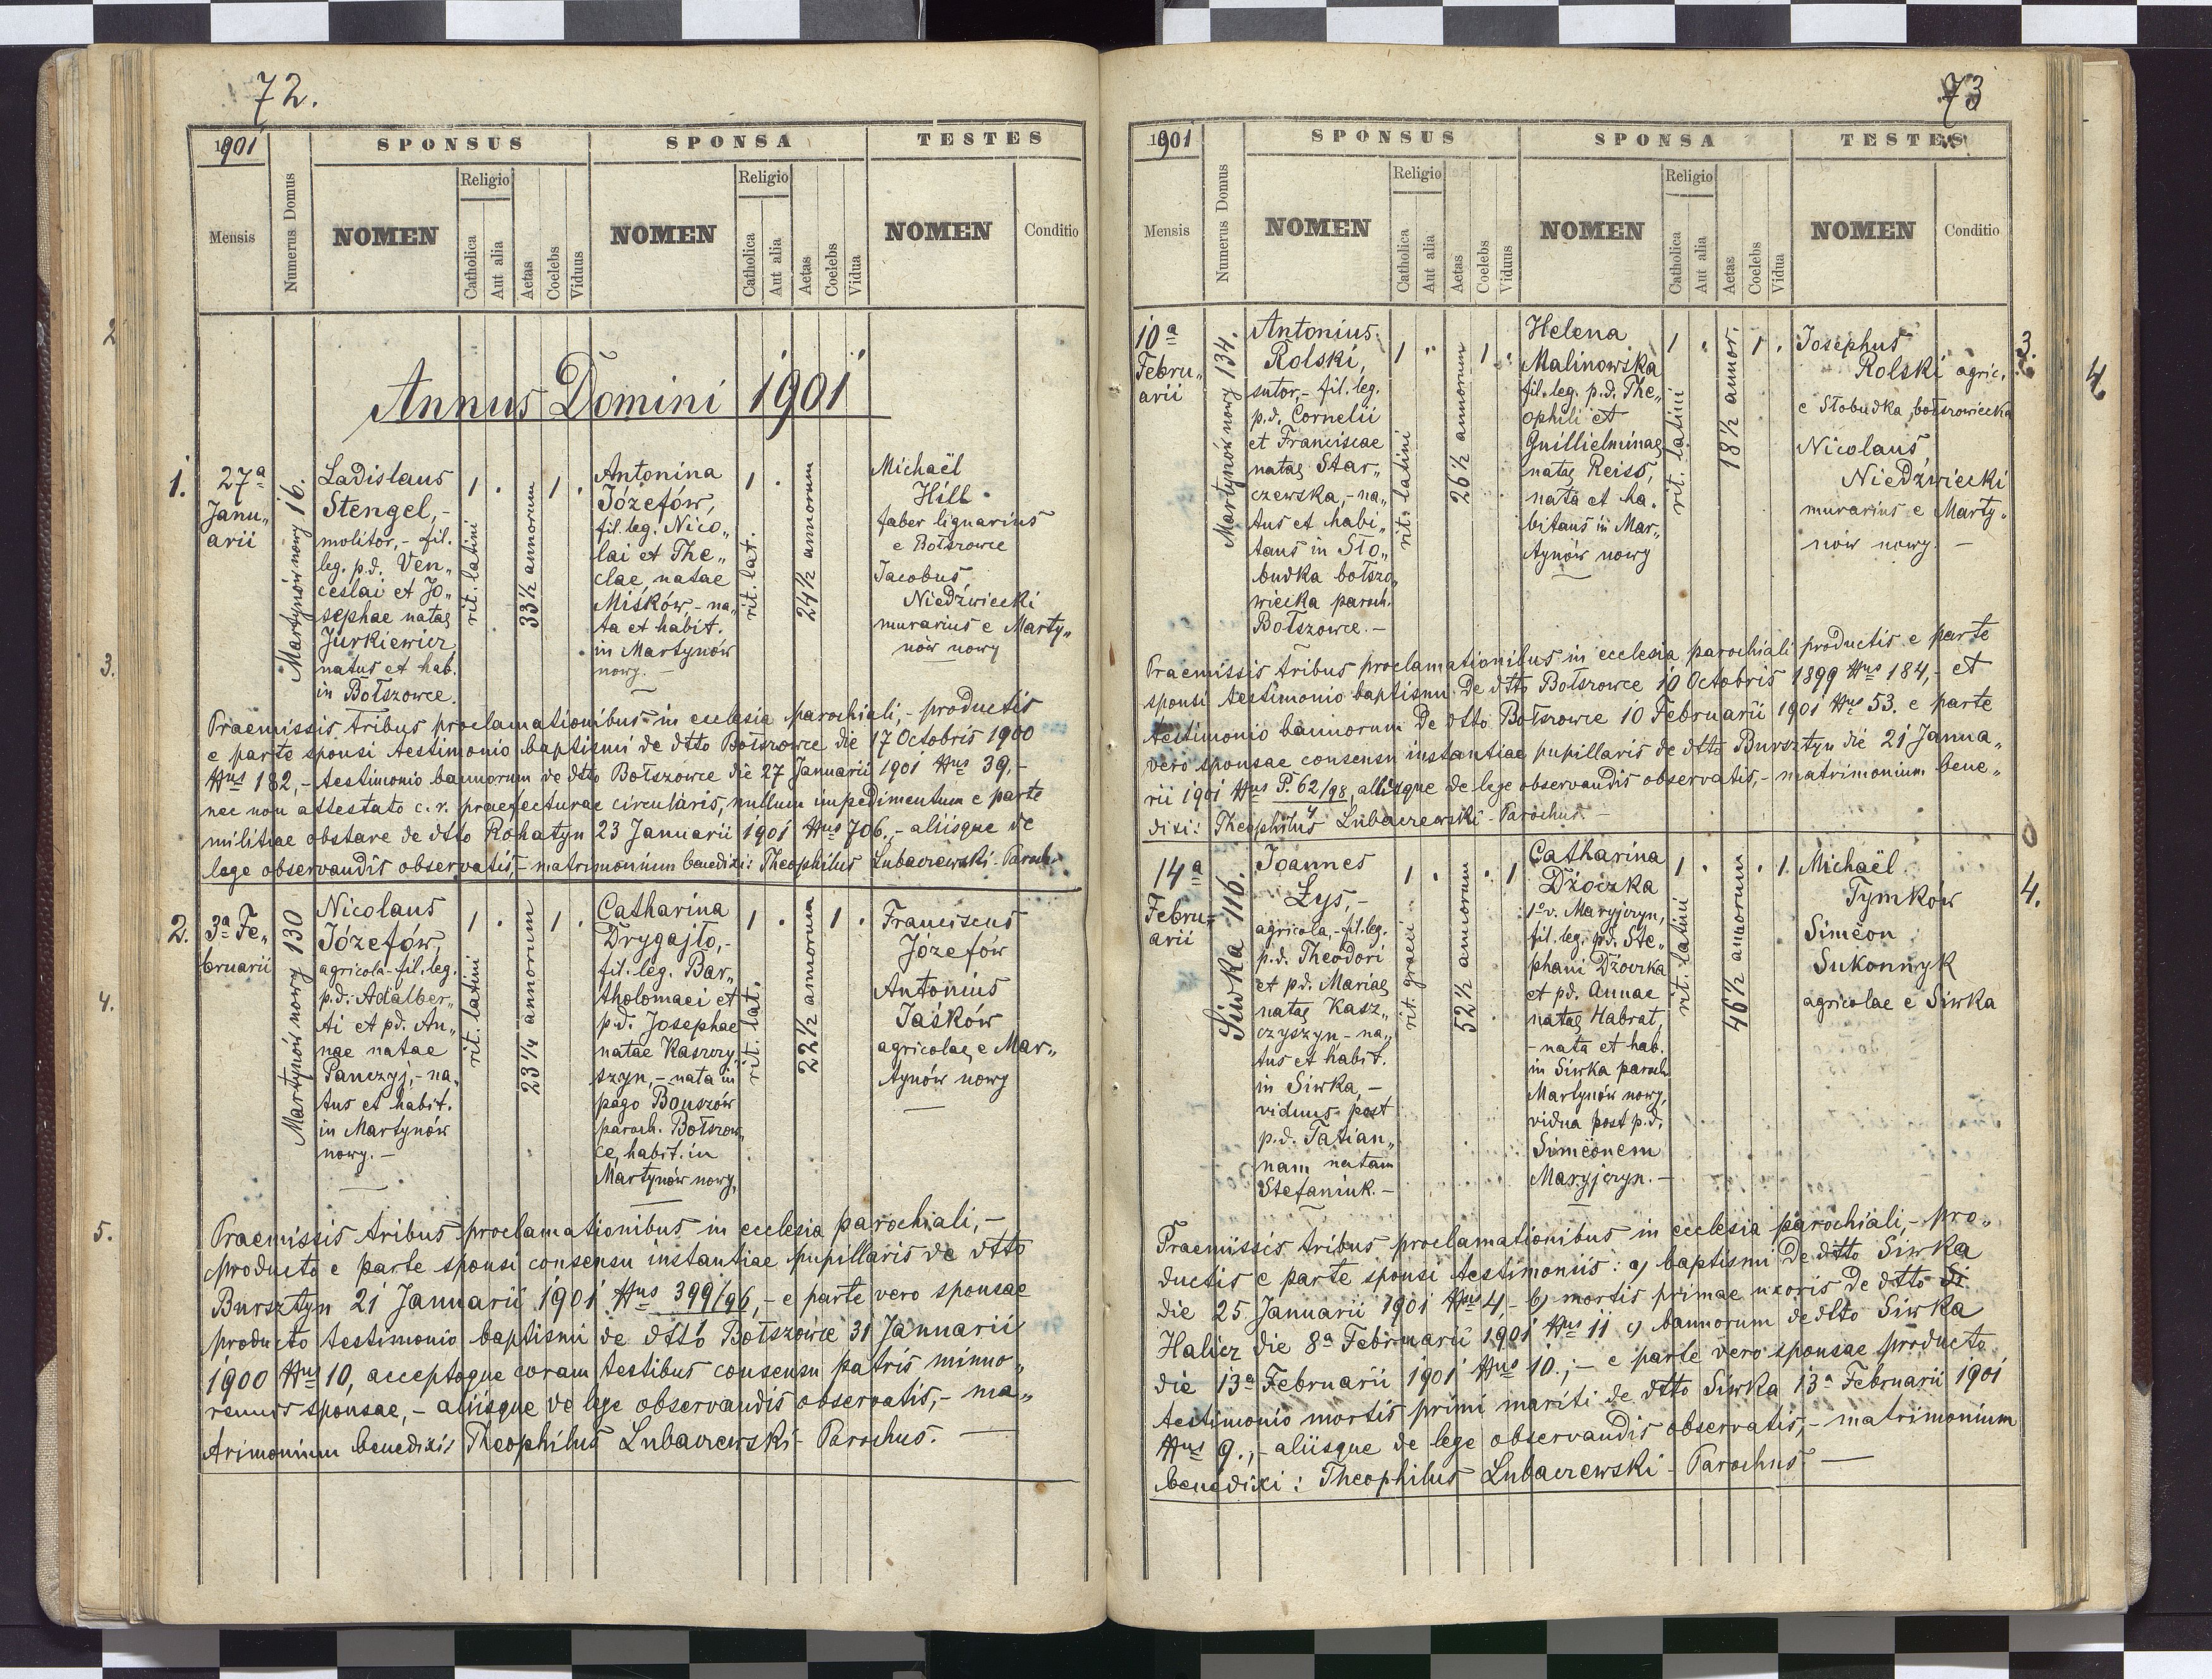 72.
1901
SPONSUS
SPONSA
TESTES
Mensis
Numerus Domus
NOMEN
Religio
Catholica
Aut alia
Aetas
Coelebs
Viduus
NOMEN
Religio
Catholica
Aut alia
Aetas
Coelebs
Vidua
NOMEN
Conditio
Annus Domini 1901
1.
27ª
Janu„
arii
Martynów nowy 16.
Ladislaus
Stengel,-
molitor,- fil.
leg. p.d. Ven„
ceslai et Jo„
sephae natae
Jurkiewicz
natus et hab.
in Bołszowce.
1
rit. latini
33½ annorum
1
Antonina
Józefów,
fil. leg. Nico„
lai et The„
clae, natae
Miśków - na„
ta et habit.
in Martynów
nowy. -
1
rit. lat.
24½ annorum
Michaël
Hilb
faber lignarius
e Bołszowce
Jacobus
Niedźwiecki
murarius e Marty„
nów nowy
Praemissis tribus proclamationibus in ecclesia parochiali,- productis
e parte sponsi testimonio baptismi de dtto Bołszowce die 17 Octobris 1900
Nus 182,- testimonio bannorum de dtto Bołszowce die 27 Januarii 1901 Nus 39,-
nec non attestato c. r. praefecturae circularis, nullum impedimentum e parte
militiae obstare de dtto Rohatyn 23 Januarii 1901 Nus 706,- aliisque de
lege observandis observatis,- matrimonium benedixi: Theophilus Lubaczewski - Paroch.
2.
3ª Fe„
bruarii
Martynów nowy 130
Nicolaus
Józefów,
agricola - fil. leg.
p.d. Adalber„
ti et pd. An„
nae natae
Panczyj,- na„
tus et habit.
in Martynów
nowy. -
1
rit. latini
23¼ annorum
1
Catharina
Drygajło,-
fil. leg. Bar„
tholomaei et
p.d. Josephae
natae Kaszczy„
szyn,- nata in
pago Bouszów
paroch. Bołszow„
ce, habit. in
Martynów nowy,
1
rit. lat.
22½ annorum
1
Franciscus
Józefów
Antonius
Jaśków
agricolae, e Mar„
tynów nowy
Praemissis tribus proclamationibus in ecclesia parochiali,-
producto e parte sponsi consensu instantiae pupillaris de dtto
Bursztyn 21 Januarii 1901 Nus 399/96,- e parte vero sponsae
producto testimonio baptismi de dtto Bołszowce 31 Januarii
1900 Nus 10, acceptoque coram testibus consensu patris mino„
rennis sponsae,- aliisque de lege observandis observatis,- ma„
trimonium benedixi: Theophilus Lubaczewski - Parochus. -
73
1901
SPONSUS
SPONSA
TESTES
Mensis
Numerus Domus
NOMEN
Religio
Catholica
Aut alia
Aetas
Coelebs
Viduus
NOMEN
Religio
Catholica
Aut alia
Aetas
Coelebs
Vidua
NOMEN
Conditio
3.
10ª
Febru„
arii
Martynów nowy 134.
Antonius
Rolski,
sutor,- fil. leg.
p.d. Cornelii
et Franciscae
natae Star„
czewska,- na„
tus et habi„
tans in Sło„
budka bołszo„
wiecka paroch.
Bołszowce. -
1
rit. latini
26½ annorum
1
Helena
Malinowska
fil. leg. p.d. The„
ophili et
Guillielminae
natae Reiss,
nata et ha„
bitans in Mar„
tynów nowy
1
rit. latini
18½ annor.
1
Josephus
Rolski agric.
e Słobudka bołszowiecka
Nicolaus
Niedźwiecki
murarius e Marty„
nów nowy. -
Praemissis tribus proclamationibus in ecclesia parochiali productis e parte
sponsi testimonio baptismi de dtto Bołszowce 10 Octobris 1899 Nus 184,- et
testimonio bannorum de dtto Bołszowce 10 Februarii 1901 Nus 53. e parte
vero sponsae consensu instantiae pupillaris de dtto Bursztyn die 21 Janua„
rii 1901 Nus P. 62/98, aliisque de lege observandis observatis,- matrimonium bene„
4
dixi: Theophilus Lubaczewski - Parochus. -
4.
14ª
Febru„
arii
Siwka 116.
Joannes
Łys,-
agricola,- fil. leg.
p.d. Theodori
et p.d. Mariae
natae Kasz„
czyszyn - na„
tus et habit.
in Siwka,-
viduus post
p.d. Tatian„
nam natam
Stefaniuk. -
1
rit. graeci
52½ annorum
1
Catharina
Dżoczka
1º v. Maryjczyn,
fil. leg. pd. Ste„
phani Dżoczka
et pd. Annae
natae Habrat,
- nata et hab.
in Siwka paroch.
Martynów nowy,
vidua post p.d.
Simeonem
Maryjczyn. -
1
rit. latini
46½ annorum
1.
Michaël
Tymków
Simeon
Sukonnyk
agricolae e Siwka
Praemissis tribus proclamationibus in ecclesia parochiali,- pro„
ductis e parte sponsi testimoniis: a) baptismi de dtto Siwka
die 25 Januarii 1901 Nus 4 - b) mortis primae uxoris de dtto
Halicz die 8ª Februarii 1901 Nus 11 c) bannorum de dtto Siwka
die 13ª Februarii 1901 Nus 10.;- e parte vero sponsae producto
testimonio mortis primi mariti de dtto Siwka 13ª Februarii 1901
Nus 9.,- aliisque de lege observandis observatis,- matrimonium
benedixi: Theophilus Lubaczewski - Parochus -
2
3.
4.
5.
4